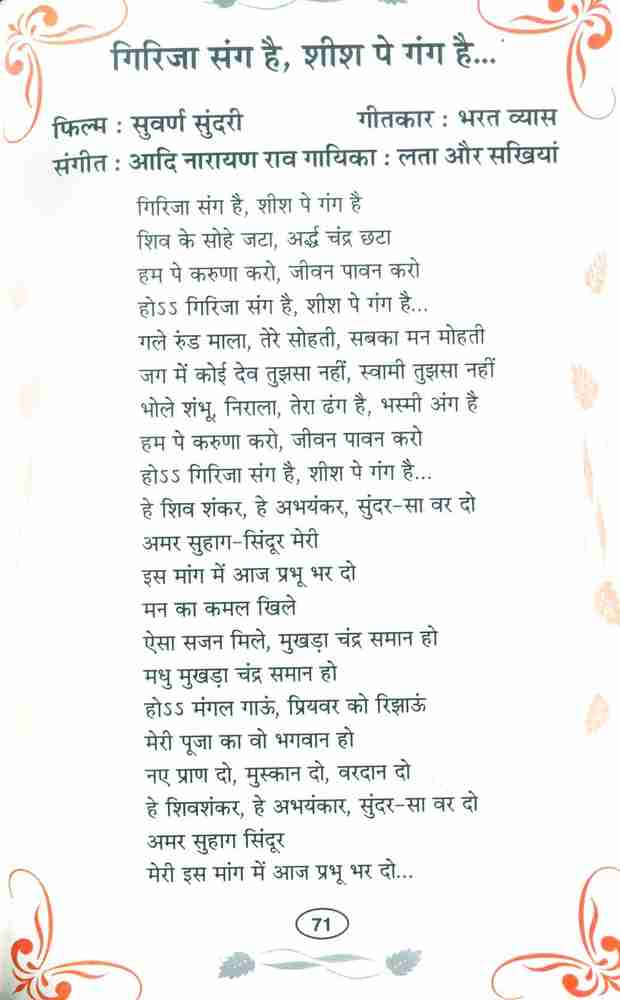 गिरिजा संग है, शीश पे गंग है...
फिल्म : सुवर्ण सुंदरी गीतकार : भरत व्यास
संगीत : आदि नारायण राव गायिका : लता और सखियां
गिरिजा संग है, शीश पे गंग है
शिव के सोहे जटा, अर्द्ध चंद्र छटा
हम पे करुणा करो, जीवन पावन करो
होऽऽ गिरिजा संग है, शीश पे गंग है...
गले रुंड माला, तेरे सोहती, सबका मन मोहती
जग में कोई देव तुझसा नहीं, स्वामी तुझसा नहीं
भोले शंभू, निराला, तेरा ढंग है, भस्मी अंग है
हम पे करुणा करो, जीवन पावन करो
होऽऽ गिरिजा संग है, शीश पे गंग है...
हे शिव शंकर, हे अभयंकर, सुंदर-सा वर दो
अमर सुहाग-सिंदूर मेरी
इस मांग में आज प्रभू भर दो
मन का कमल खिले
ऐसा सजन मिले, मुखड़ा चंद्र समान हो
मधु मुखड़ा चंद्र समान हो
होऽऽ मंगल गाऊं, प्रियवर को रिझाऊं
मेरी पूजा का वो भगवान हो
नए प्राण दो, मुस्कान दो, वरदान दो
हे शिवशंकर, हे अभयंकार, सुंदर-सा वर दो
अमर सुहाग सिंदूर
मेरी इस मांग में आज प्रभू भर दो...
71